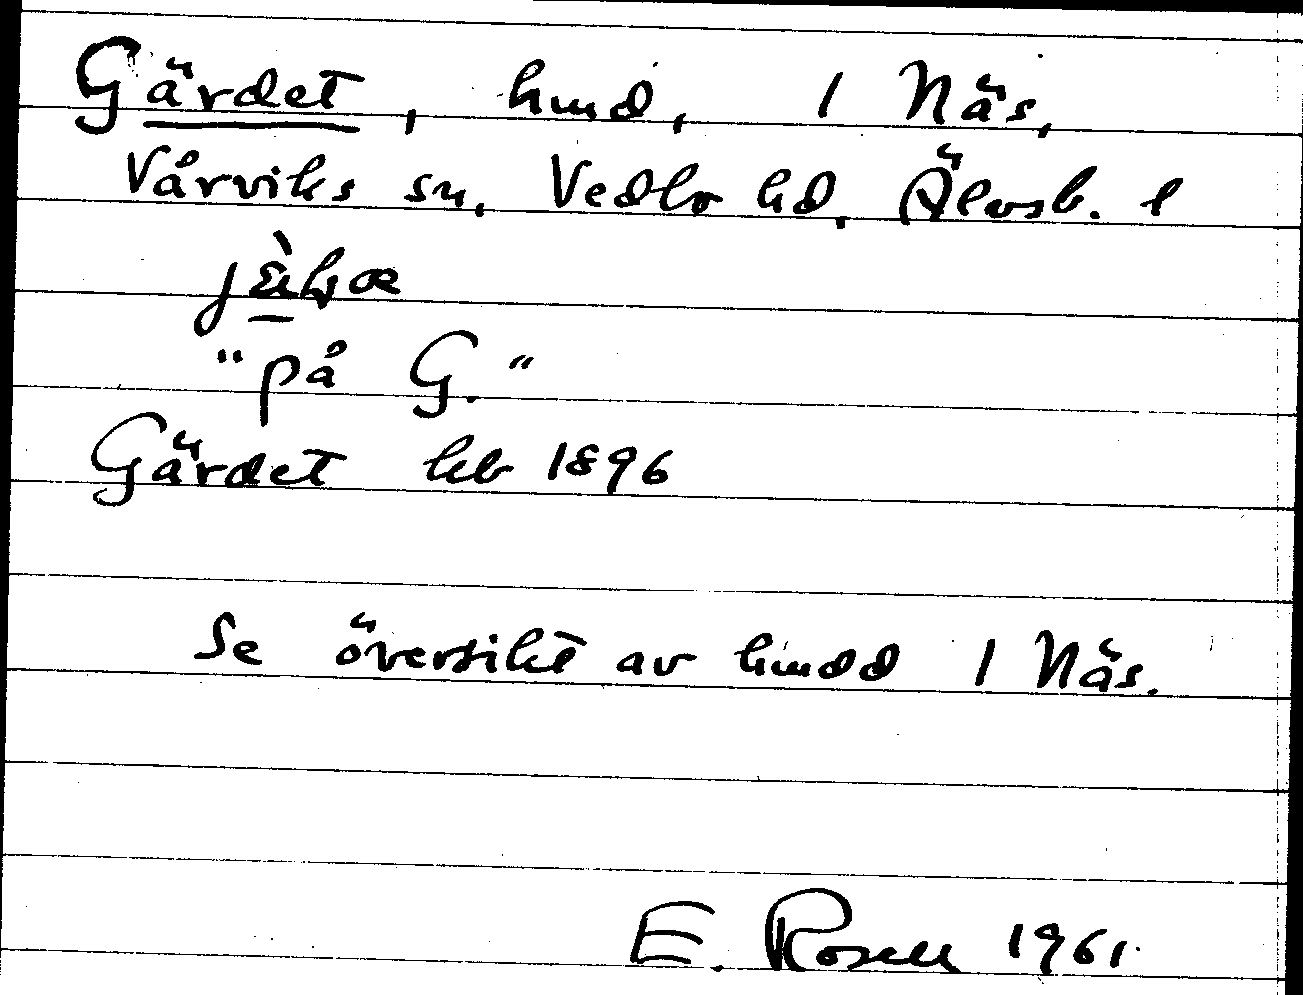 Gärdet, hmd, 1 Näs,
Vårviks sn. Vedbo hd, Älvsb. l
"på G."
Gärdet kb 1896
Se översikt av hmdd 1 Näs.
E. Rosell 1961